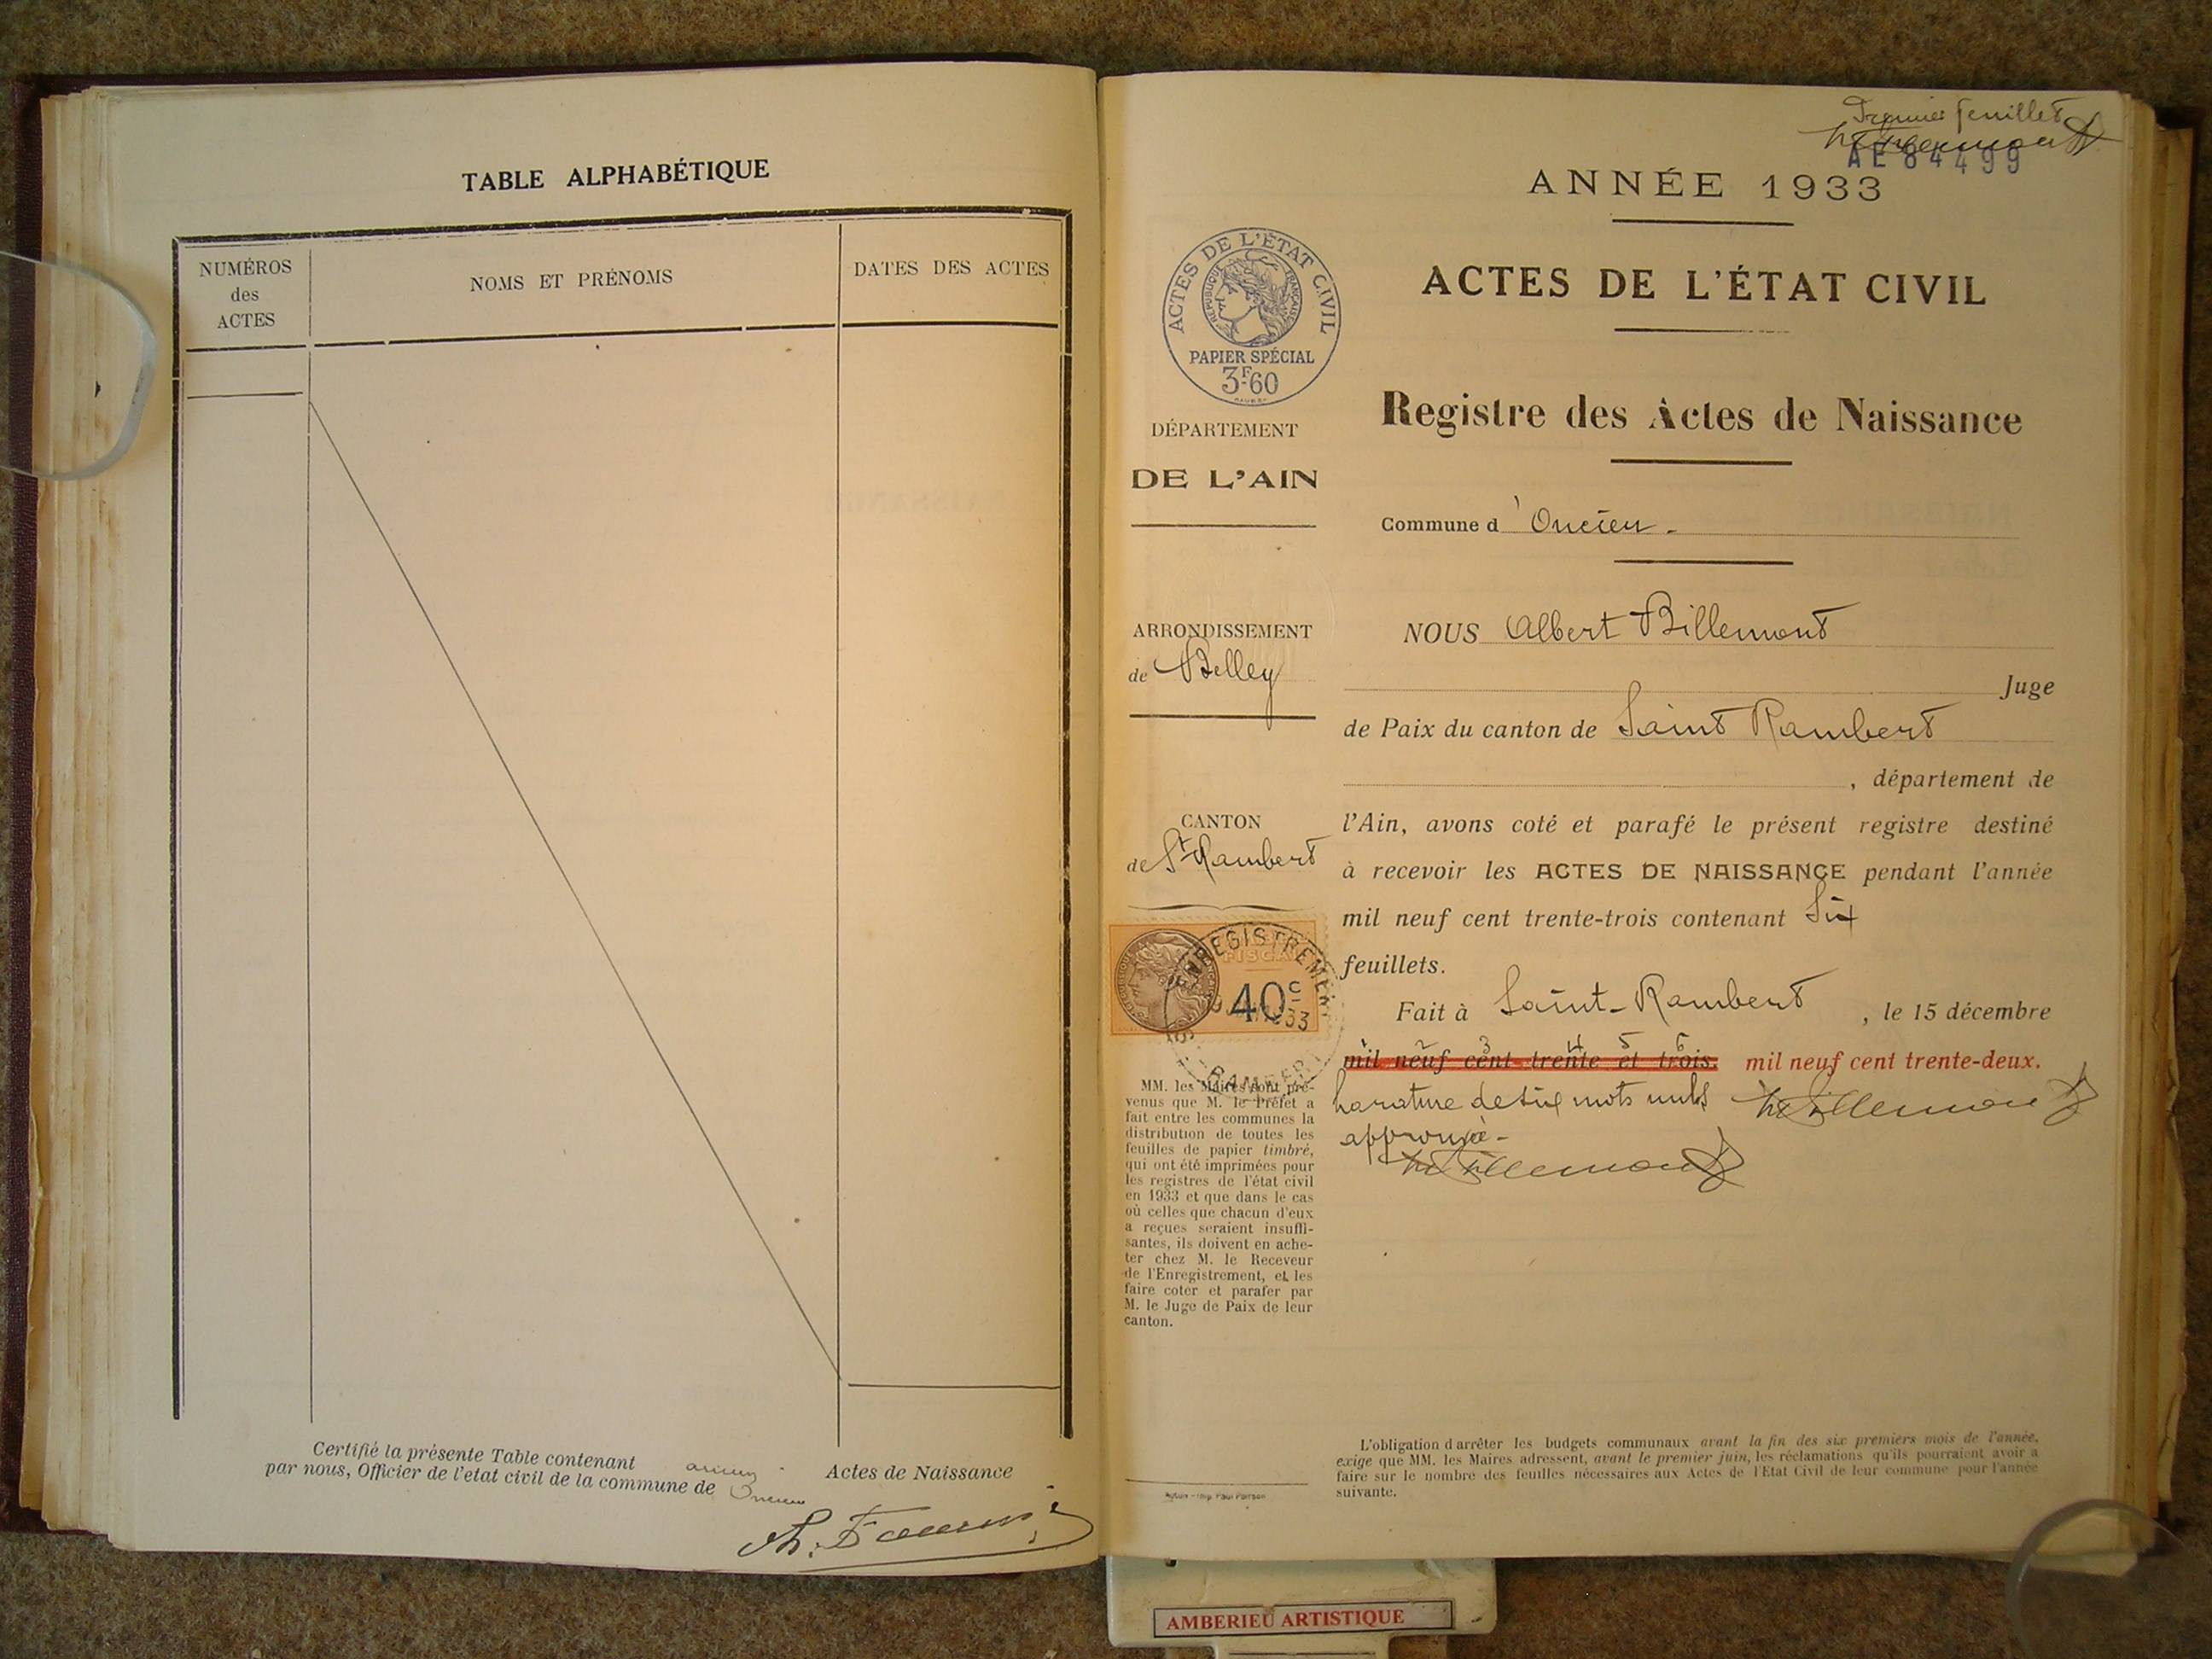 TABLE ALPHABÉTIQUE
NUMÉROS
des
ACTES
NOMS ET PRÉNOMS
DATES DES ACTES
Certifié la présente Table contenant aucun Actes de Naissance
par nous, Officier de l'etat civil de la commune de Oncieu
Premier feuillet
AE 84499
ANNÉE 1933
ACTES DE L'ÉTAT CIVIL
RÉPUBLIQUE FRANÇAISE
PAPIER SPÉCIAL
3F.60
DÉPARTEMENT
DE L'AIN
ARRONDISSEMENT
de Belley
CANTON
de St Rambert
ENREGISTREMENT
FISCAL
40c
MM. les Maires sont pré-
venus que M. le Préfet a
fait entre les communes la
distribution de toutes les
feuilles de papier timbré,
qui ont été imprimées pour
les registres de l'état civil
en 1933 et que dans le cas
où celles que chacun d'eux
a reçues seraient insuffi-
santes, ils doivent en ache-
ter chez M. le Receveur
de l'Enregistrement, et les
faire coter et parafer par
M. le Juge de Paix de leur
canton.
ACTES DE L'ÉTAT CIVIL
Registre des Actes de Naissance
Commune d'Oncieu.
NOUS Albert Billemont
Juge
de Paix du canton de Saint Rambert
, département de
l'Ain, avons coté et parafé le présent registre destiné
à recevoir les ACTES DE NAISSANCE pendant l'année
mil neuf cent trente-trois contenant Six
feuillets.
Fait à Saint-Rambert, le 15 décembre
1 2 3 4 5 6
mil neuf cent trente et trois. mil neuf cent trente-deux.
de six mots nuls
approuvée-
L'obligation d'arrêter les budgets communaux avant la fin des six premiers mois de l'année,
exige que MM. les Maires adressent, avant le premier juin, les réclamations qu'ils pourraient avoir a
faire sur le nombre des feuilles nécessaires aux Actes de l'Etat Civil de leur commune pour l'année
suivante.
AMBERIEU ARTISTIQUE